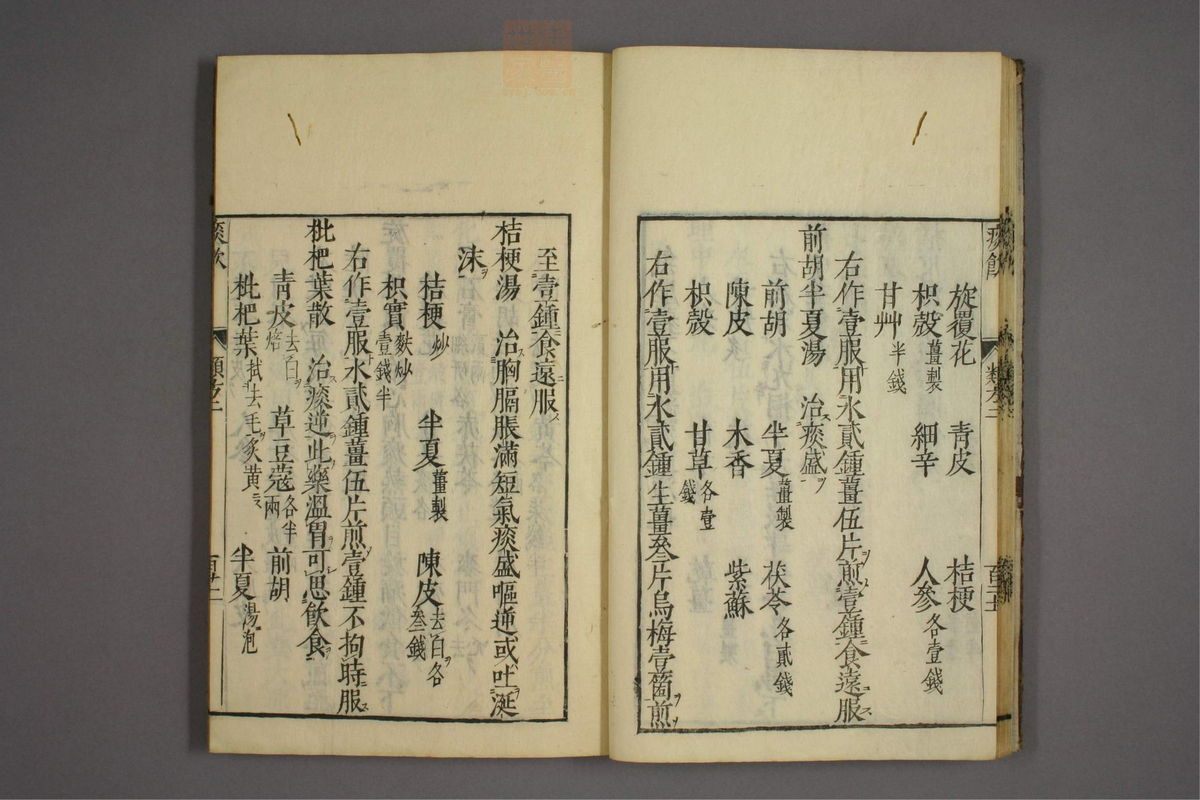 痰飲 類方二
旋覆花 青皮 桔梗
枳殼薑製 細辛 人參各壹錢
甘艸半錢
右作壹服用水貳鍾薑伍片煎壹鍾食遠服
前胡半夏湯 治痰盛
前胡 半夏薑製 茯苓各貳錢
陳皮 木香 紫蘇
枳殼 甘草各壹錢
右作壹服用水貳鍾生薑叄片烏梅壹箇煎
至壹鍾食遠服
桔梗湯 治胸膈脹滿短氣痰盛嘔逆或吐涎
沫
桔梗炒 半夏薑製 陳皮去白各叄錢
枳實麩炒壹錢半
右作壹服水貳鍾薑伍片煎壹鍾不拘時服
枇杷葉散 治痰逆此藥溫胃可思飲食
青皮去白焙 草豆蔻各半兩 前胡
枇杷葉拭去毛炙黃 半夏湯泡
痰飲 類方二